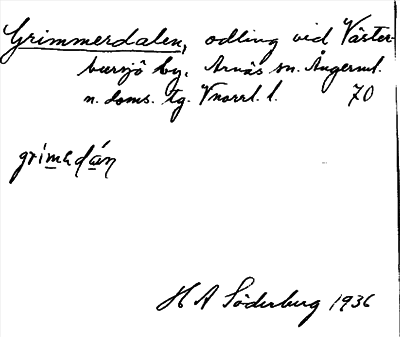 Grimmerdalen, odling vid Väster-
bursjö by, Arnäs sn. Ångerml.
n. doms. tg. Vnorrl. l. 70
grimadán
H A Söderberg 1936